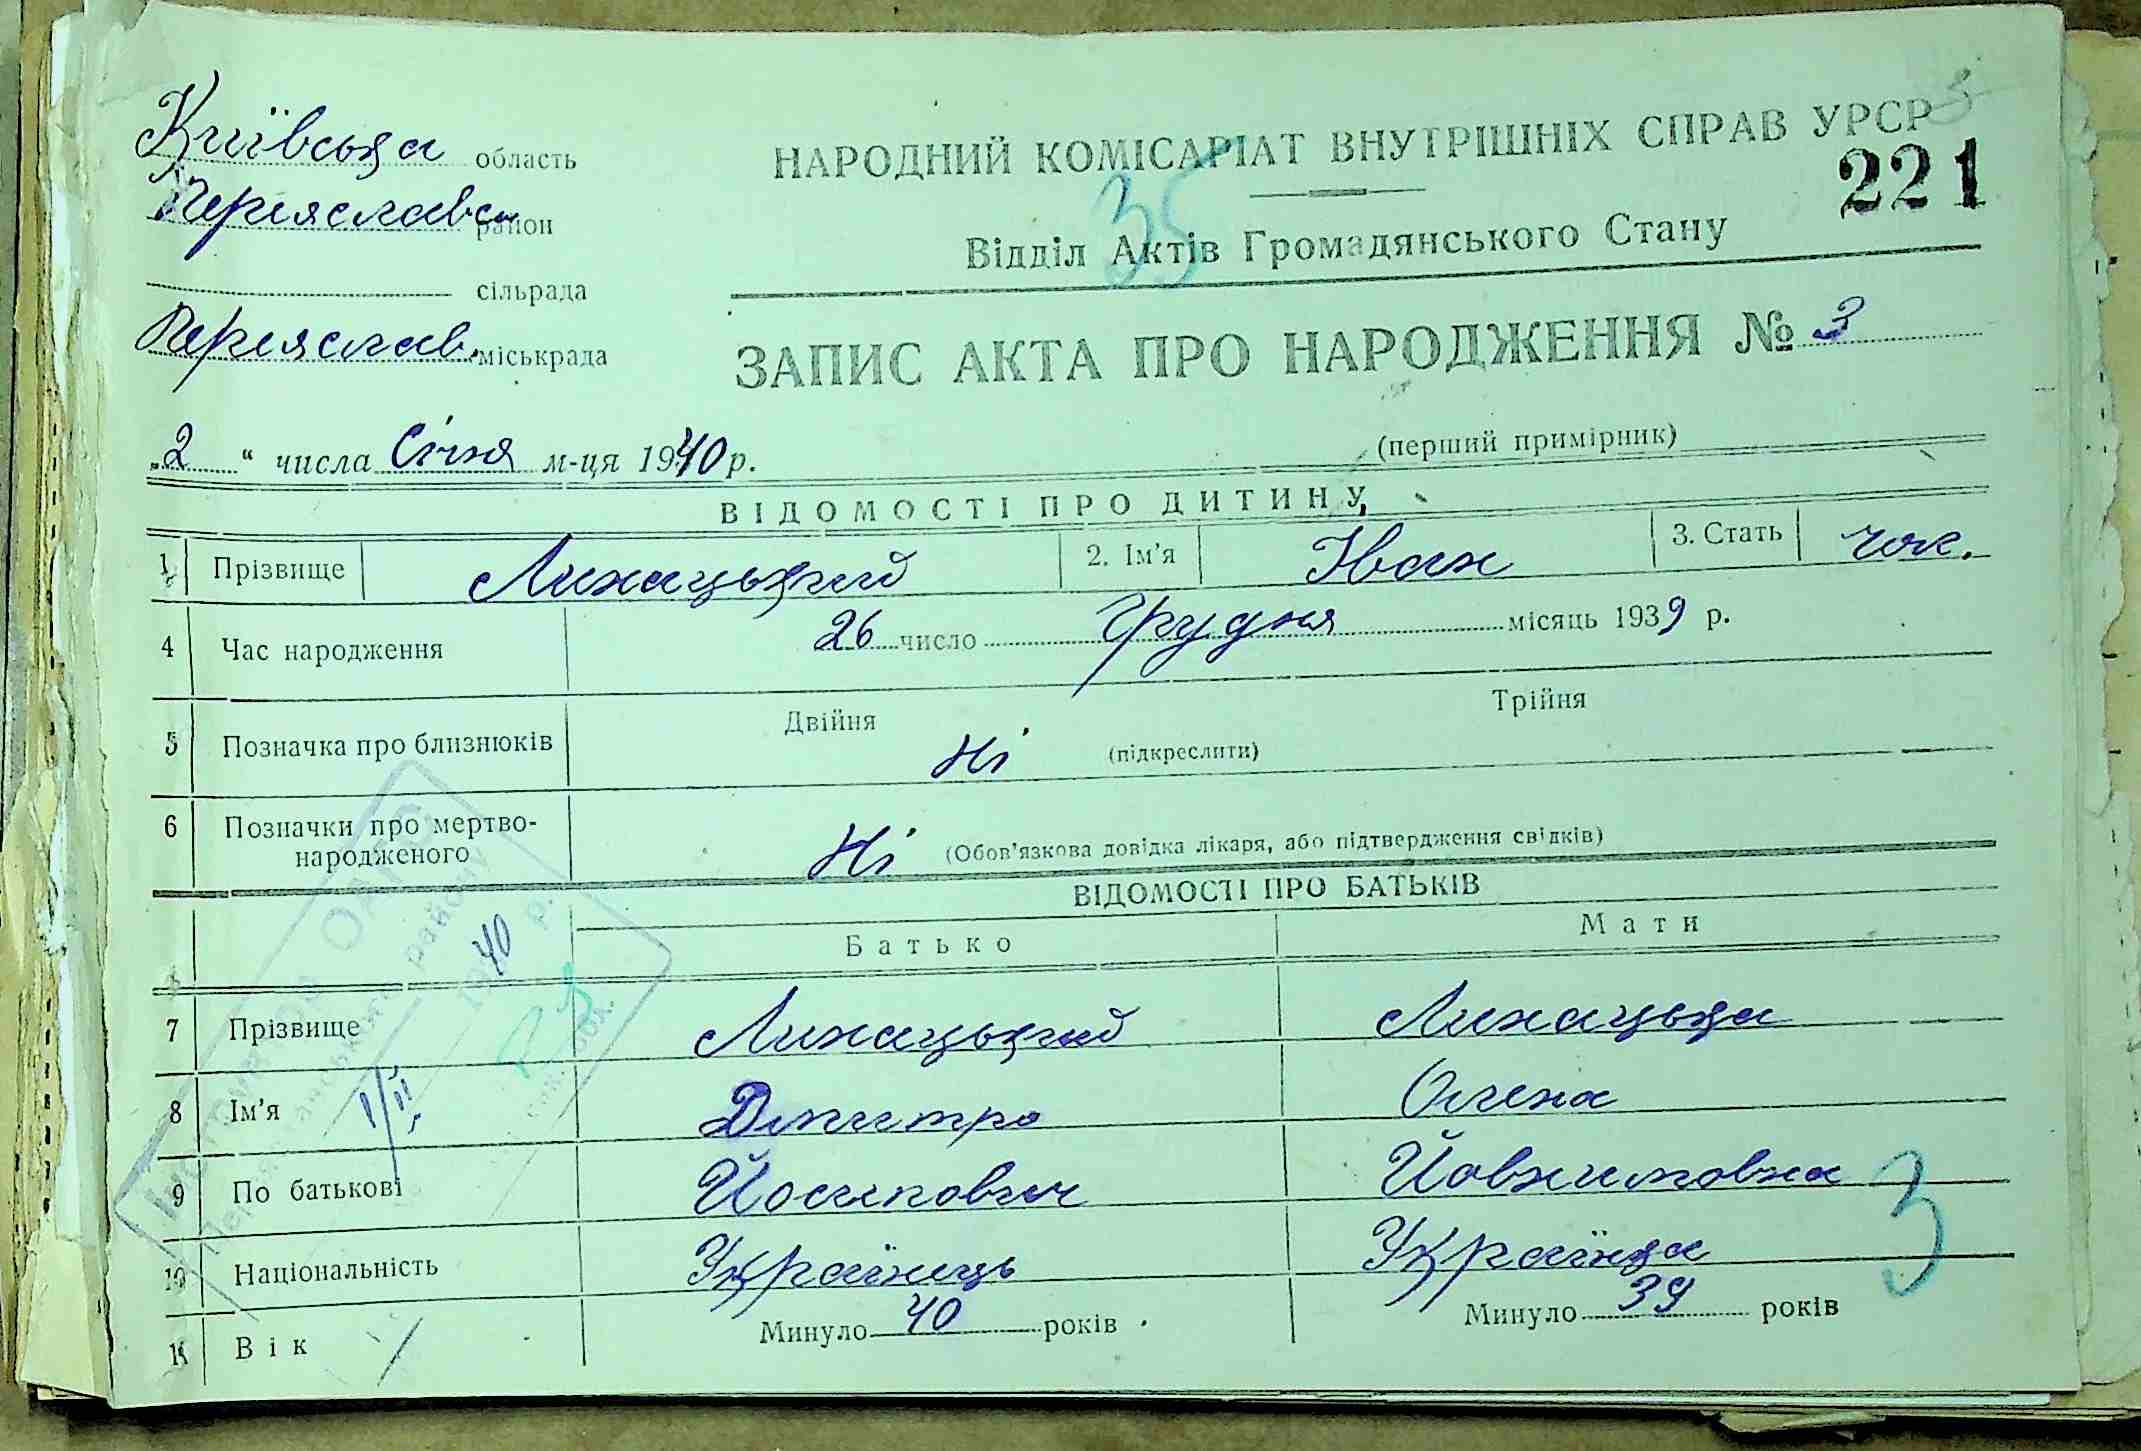 Київська область
НАРОДНИЙ КОМІСАРІАТ ВНУТРІШНІХ СПРАВ УРСР
221
Переяславськ район
35
Відділ Актів Громадянського Стану
сільрада
Переяслав. міськрада
ЗАПИС АКТА ПРО НАРОДЖЕННЯ № 3
„2“ числа Січня м-ця 1940 р.
(перший примірник)
ВІДОМОСТІ ПРО ДИТИНУ
1 Прізвище Лихацький 2. Ім'я Іван 3. Стать чол.
4 Час народження 26 число Грудня місяць 1939 р.
5 Позначка про близнюків Двійня Ні (підкреслити) Трійня
6 Позначки про мертво-
народженого Ні (Обов'язкова довідка лікаря, або підтвердження свідків)
ВІДОМОСТІ ПРО БАТЬКІВ
Батько Мати
7 Прізвище Лихацький Лихацька
8 Ім'я Дмитро Олена
9 По батькові Йосипович
10 Національність Українець Українка
3
11 Вік Минуло 40 років Минуло 39 років